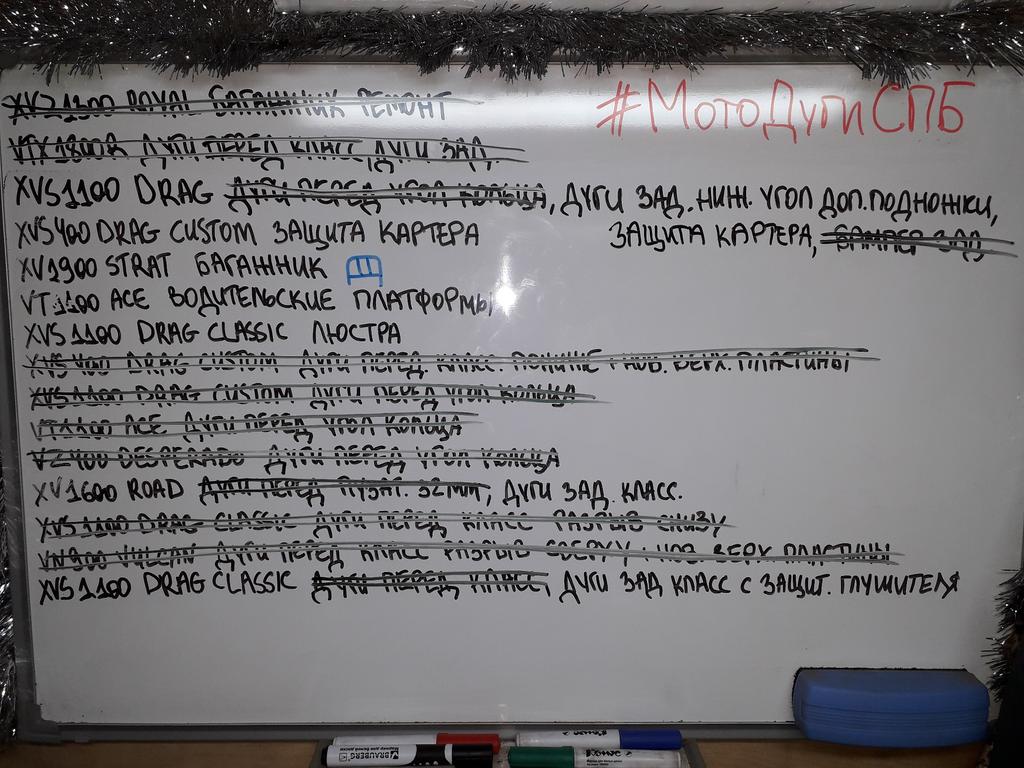 XVZ1300 ROYAL БАГАЖНИК РЕМОНТ
#МотоДугиСПБ
VTX1800R ДУГИ ПЕРЕД КЛАСС, ДУГИ ЗАД.
XVS1100 DRAG ДУГИ ПЕРЕД УГОЛ КОЛЬЦА, ДУГИ ЗАД. НИЖ. УГОЛ ДОП. ПОДНОЖКИ,
XVS400 DRAG CUSTOM ЗАЩИТА КАРТЕРА
ЗАЩИТА КАРТЕРА, БАМПЕР ЗАД.
XV1900 STRAT БАГАЖНИК
VT1100 ACE ВОДИТЕЛЬСКИЕ ПЛАТФОРМЫ
XVS1100 DRAG CLASSIC ЛЮСТРА
XVS400 DRAG CUSTOM ДУГИ ПЕРЕД. КЛАСС. ПОНИЖЕ ВЕРХ. ПЛАСТИНЫ
XVS1100 DRAG CUSTOM ДУГИ ПЕРЕД УГОЛ КОЛЬЦА
VT1100 ACE ДУГИ ПЕРЕД УГОЛ КОЛЬЦА
VZ400 DESPERADO ДУГИ ПЕРЕД УГОЛ КОЛЬЦА
XV1600 ROAD ДУГИ ПЕРЕД ПУЗАТ. 32mm, ДУГИ ЗАД. КЛАСС.
XVS1100 DRAG CLASSIC ДУГИ ПЕРЕД КЛАСС РАЗРЫВ СНИЗУ
VN900 VULCAN ДУГИ ПЕРЕД КЛАСС РАЗРЫВ СВЕРХУ, НОВ. ВЕРХ. ПЛАСТИНЫ
XVS1100 DRAG CLASSIC ДУГИ ПЕРЕД КЛАСС, ДУГИ ЗАД КЛАСС С ЗАЩИТ. ГЛУШИТЕЛЯ
BRAUBERG
Маркер для белой доски
Комус
Комус